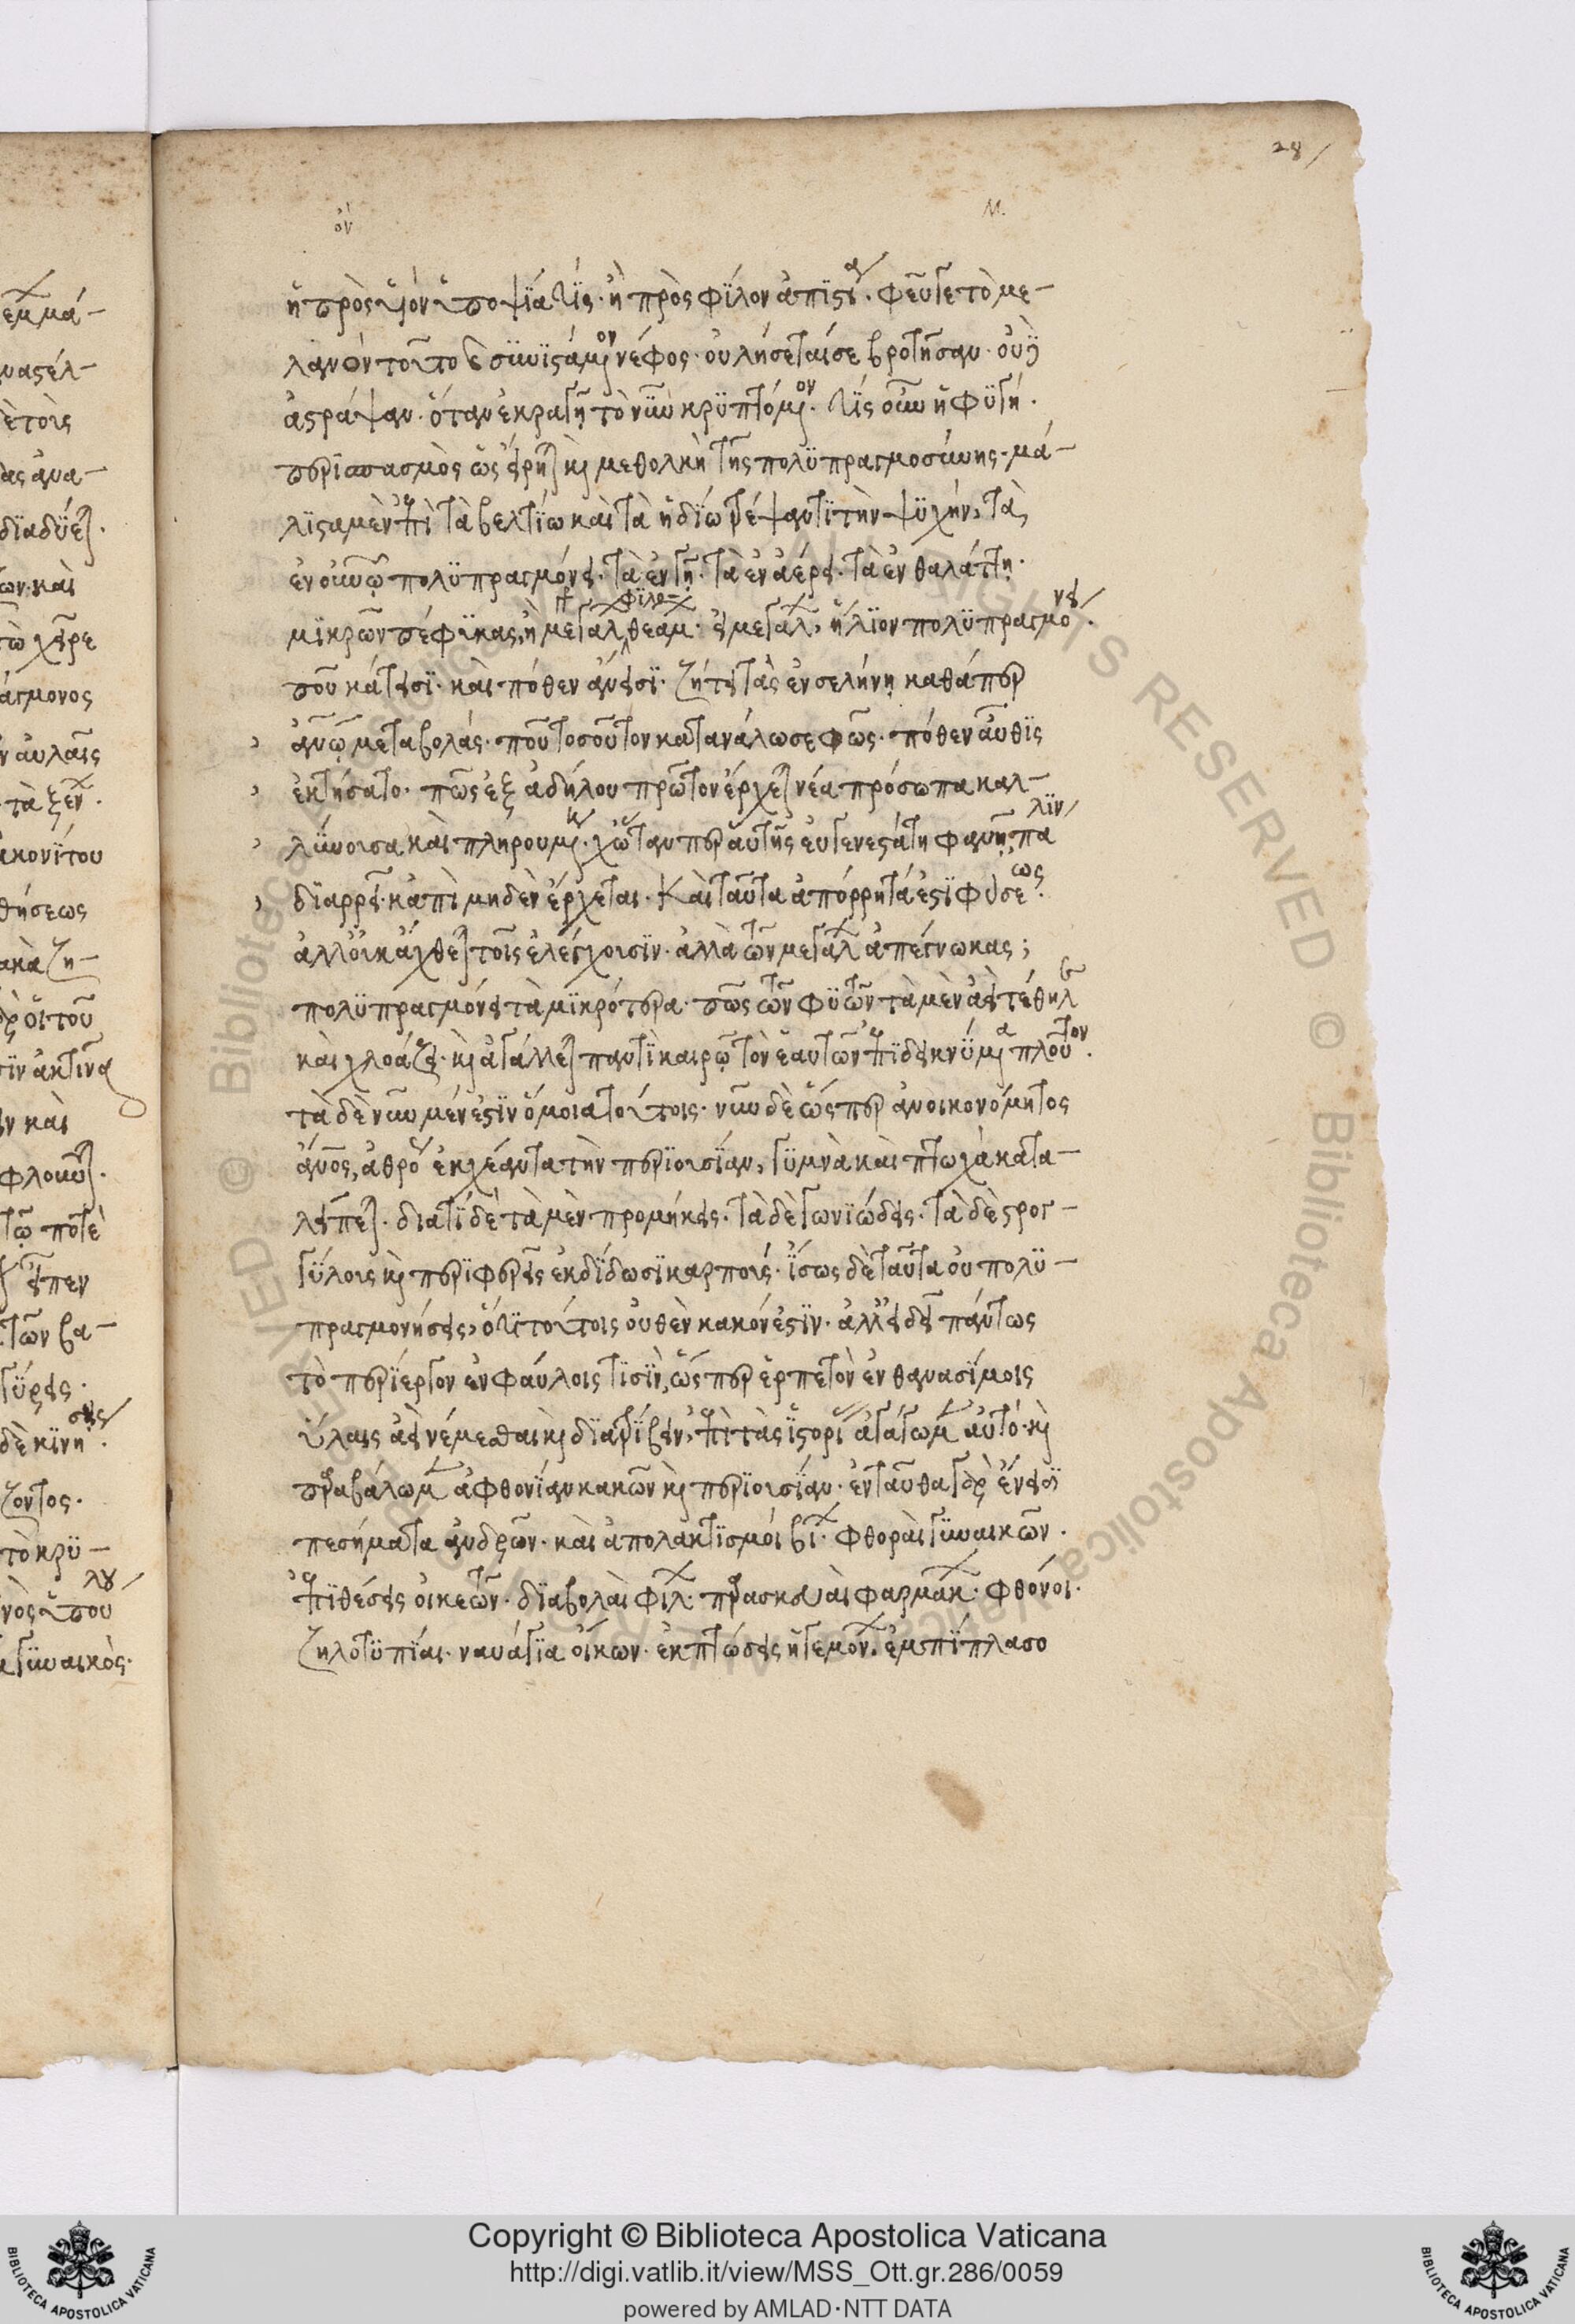 28
ὸν
Μ.
ἢ πρὸς υἱὸν ὑποψία τίς· ἢ πρὸς φίλον ἀπιστία. φεῦγε τὸ με-
λαν ὂν τοῦτο καὶ συνιστάμενον νέφος· οὐ λήσεταί σε βροντῆσαν· οὐδ'
ἀστράψαν. ὅταν ἐκραγῇ τὸ νῦν κρυπτόμενον. τίς οὖν ἡ φυγή.
περισπασμὸς ὡς εἴρηται καὶ μεθολκὴ τῆς πολυπραγμοσύνης· μά-
λιστα μὲν ἐπὶ τὰ βελτίω καὶ τὰ ἡδίω τρέψαντι τὴν ψυχήν, τὰ
ἐν οὐρανῷ πολυπραγμόνει. τὰ ἐν γῇ. τὰ ἐν ἀέρι. τὰ ἐν θαλάττῃ.
μικρῶν πέφυκας, ἢ μεγάλων φιλοθεάμων. εἰ μεγάλων, ἥλιον πολυπραγμόνει.
ποῦ κάτεισι. καὶ πόθεν ἄνεισι. ζήτει τὰς ἐν σελήνῃ καθάπερ
ἀνθρώπῳ μεταβολάς. ποῦ τοσοῦτον κατανάλωσε φῶς. πόθεν αὖθις
ἐκτήσατο. πῶς ἐξ ἀδήλου πρῶτον ἔρχεται νέα πρόσωπα καλ-
λύνουσα καὶ πληρουμένη. χὤταν περ αὑτῆς εὐγενεστάτη φανῇ, πάλιν
διαρρεῖ. κἀπὶ μηδὲν ἔρχεται. καὶ ταῦτα ἀπόρρητά ἐστι φύσεως.
ἀλλ' οὐκ ἄχθεται τοῖς ἐλέγχουσιν. ἀλλὰ τῶν μεγάλων ἀπέγνωκας;
πολυπραγμόνει τὰ μικρότερα. πῶς τῶν φυτῶν τὰ μὲν ἀεὶ τέθηλε
καὶ χλοάζει. καὶ ἀγάλλεται παντὶ καιρῷ τὸν ἑαυτῶν ἐπιδεικνύμενα πλοῦτον.
τὰ δὲ νῦν μέν ἐστιν ὅμοια τούτοις. νῦν δὲ ὥσπερ ἀνοικονόμητος
ἄνθρωπος, ἀθρόον ἐκχέαντα τὴν περιουσίαν, γυμνὰ καὶ πτωχὰ κατα-
λείπεται. διατί δὲ τὰ μὲν προμήκεις. τὰ δὲ γωνιώδεις. τὰ δὲ στρογ-
γύλους καὶ περιφερεῖς ἐκδίδωσι καρπούς. ἴσως δὲ ταῦτα οὐ πολυ-
πραγμονήσεις, ὅτι τούτοις οὐθὲν κακόν ἐστιν. ἀλλ' εἰ δεῖ πάντως
τὸ περίεργον ἐν φαύλοις τισίν, ὥσπερ ἑρπετὸν ἐν θανασίμοις
ὕλαις ἀεὶ νέμεσθαι καὶ διατρίβειν, ἐπὶ τὰς ἱστορίας ἀγάγωμεν αὐτό. καὶ
παραβάλωμεν ἀφθονίαν κακῶν καὶ περιουσίαν. ἐνταῦθα γὰρ ἔνεισι
πεσήματα ἀνδρῶν. καὶ ἀπολακτισμοὶ βίων. φθοραὶ γυναικῶν.
ἐπιθέσεις οἰκετῶν. διαβολαὶ φίλων. παρασκευαὶ φαρμάκων. φθόνοι.
ζηλοτυπίαι. ναυάγια οἴκων. ἐκπτώσεις ἡγεμόνων. ἐμπίπλασο
Copyright © Biblioteca Apostolica Vaticana
http://digi.vatlib.it/view/MSS_Ott.gr.286/0059
powered by AMLAD·NTT DATA